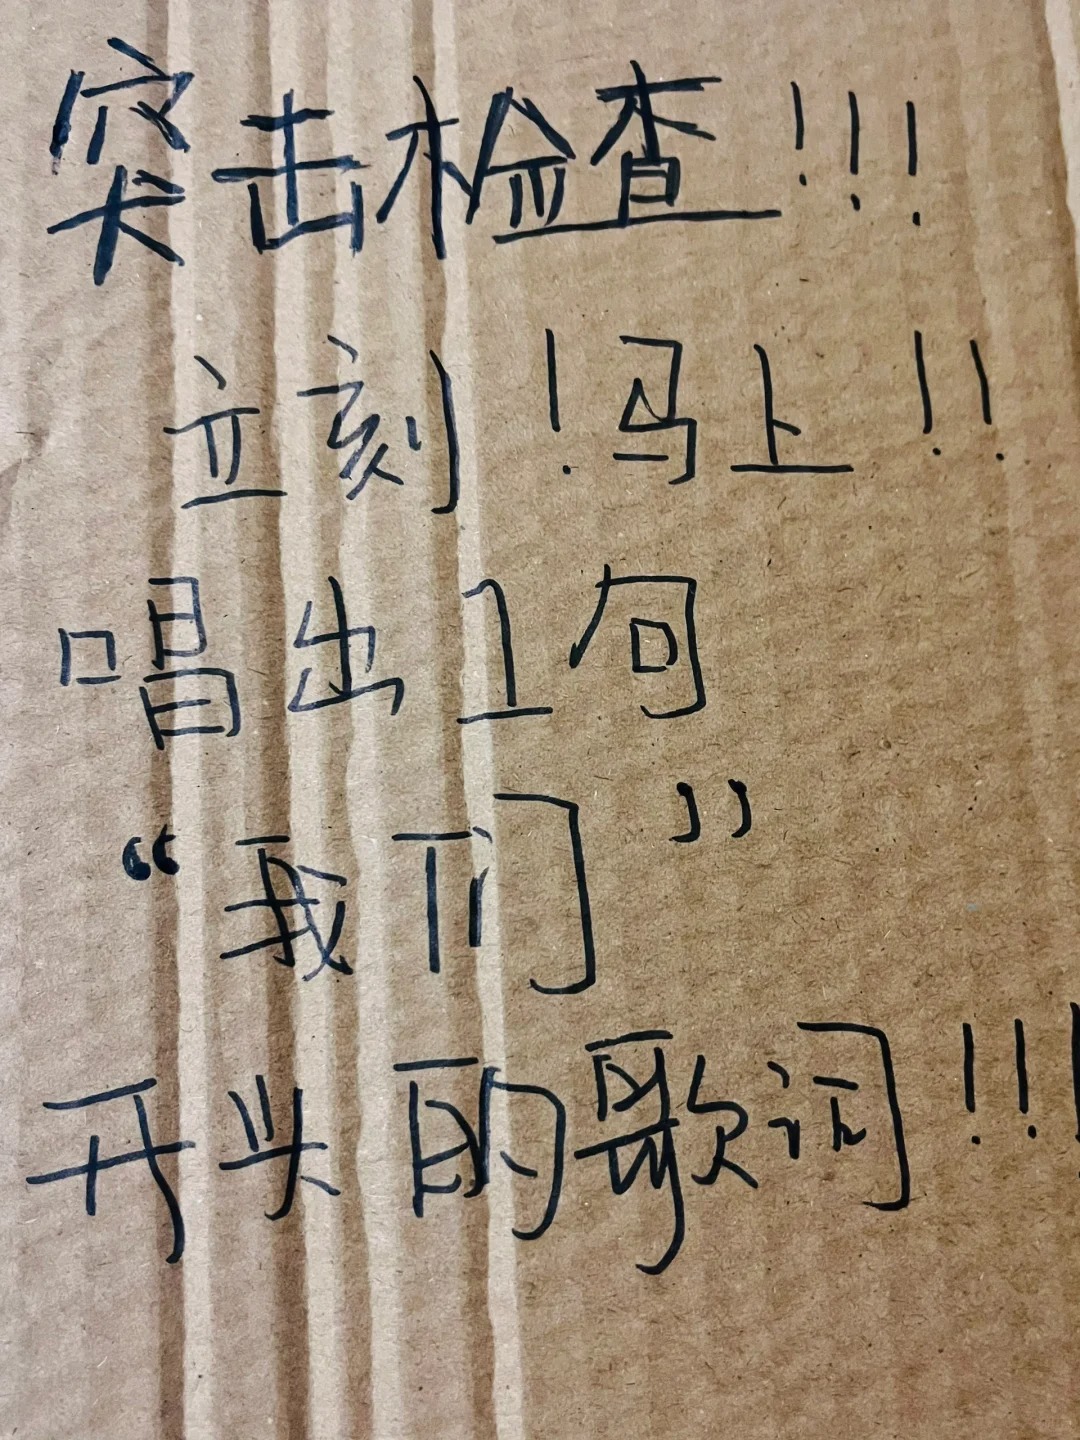 突击检查!!!
立刻!马上!!
唱出1句
“我们”
开头的歌词!!!